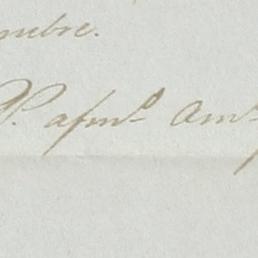 mbre.
P. afmº Amº